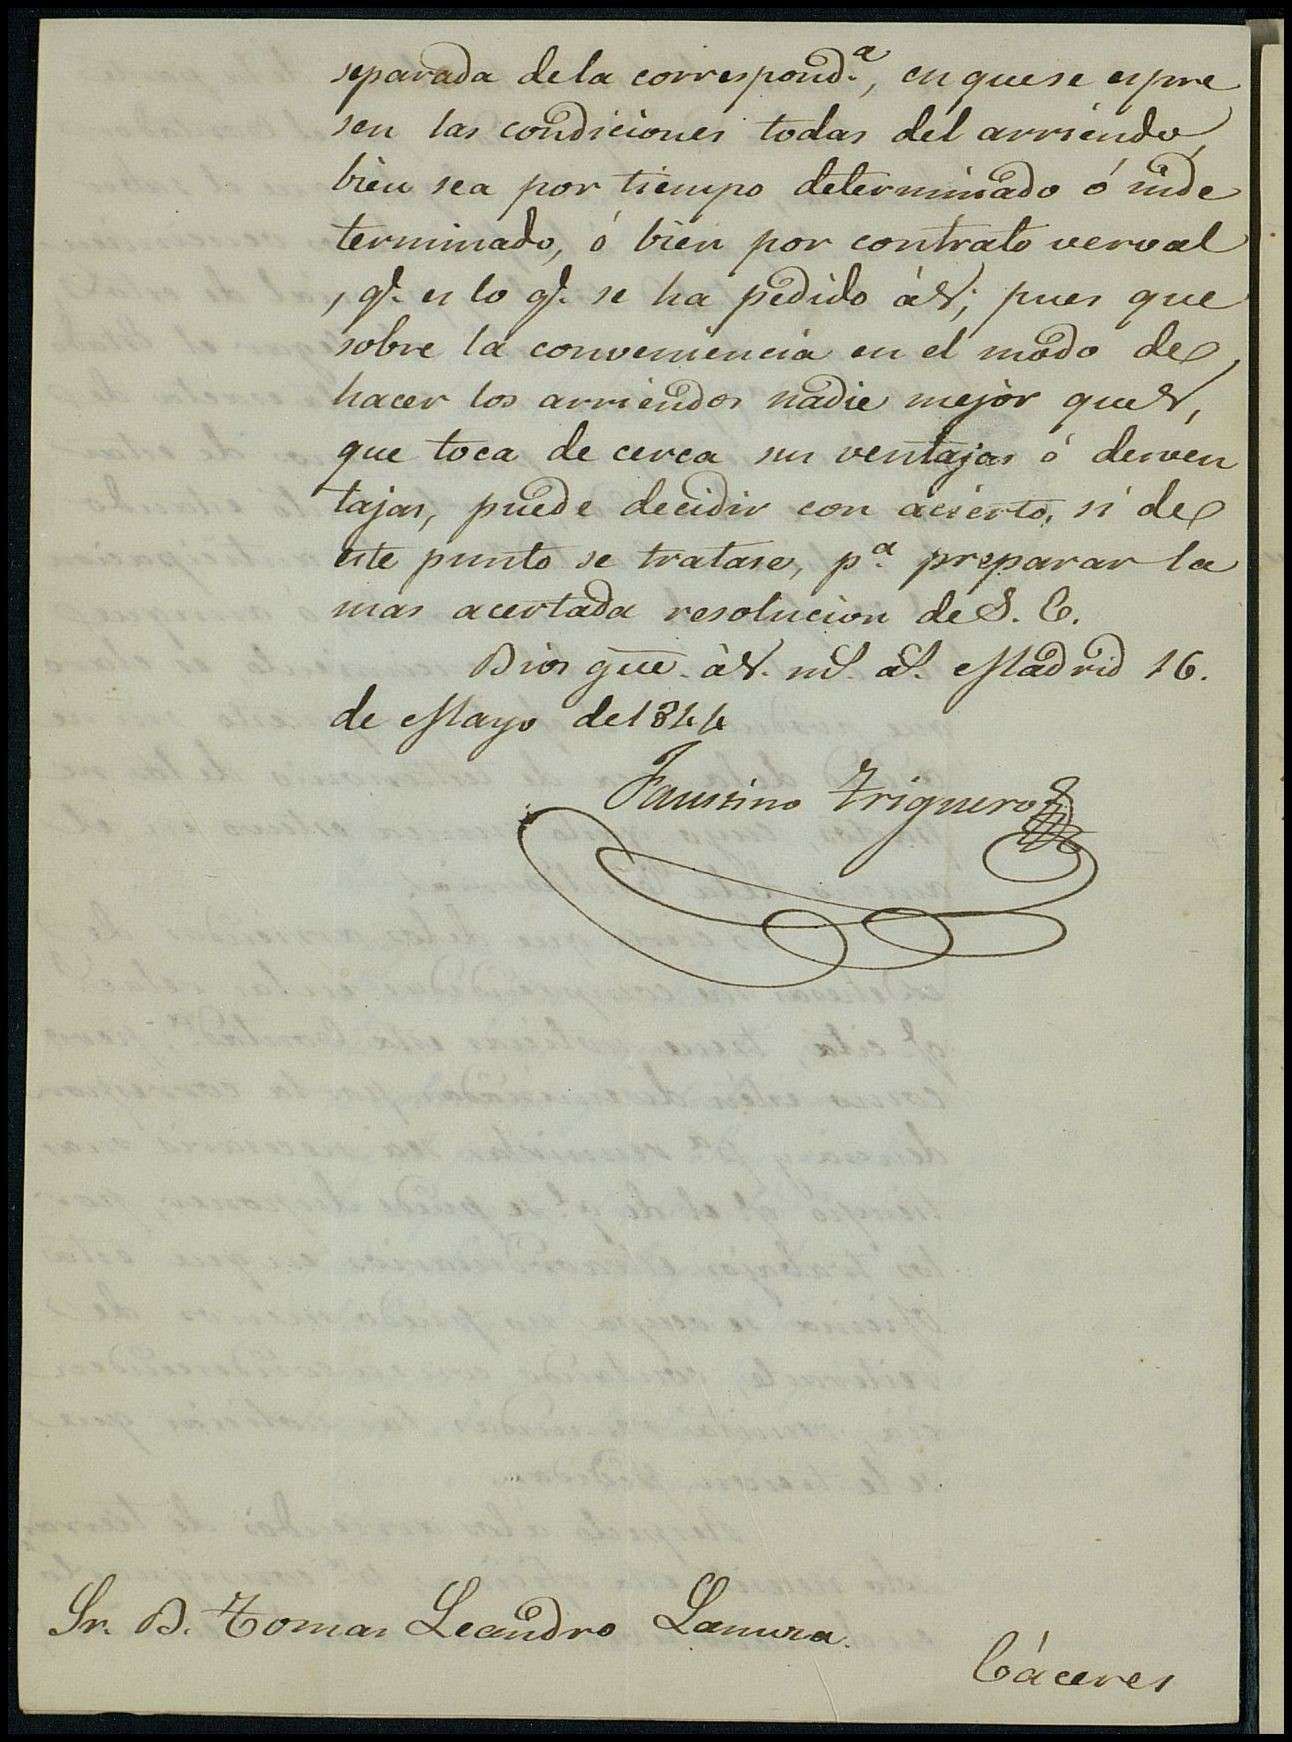 separada de la correspond.ª, en que se espre
sen las condiciones todas del arriendo,
bien sea por tiempo determinado ó inde
terminado, ó bien por contrato verval
, q.e es lo q.e se ha pedido à V; pues que
sobre la conveniencia en el modo de
hacer los arriendos nadie mejor que V,
que toca de cerca sus ventajas ó desven
tajas, puede decidir con acierto, si de
este punto se tratase, p.ª preparar la
mas acertada resolucion de S. E.
Dios gue. à V. m.s a.s Madrid 16.
de Mayo de 1844
Faustino Trigueros
Sr. D. Tomas Leandro
Cáceres